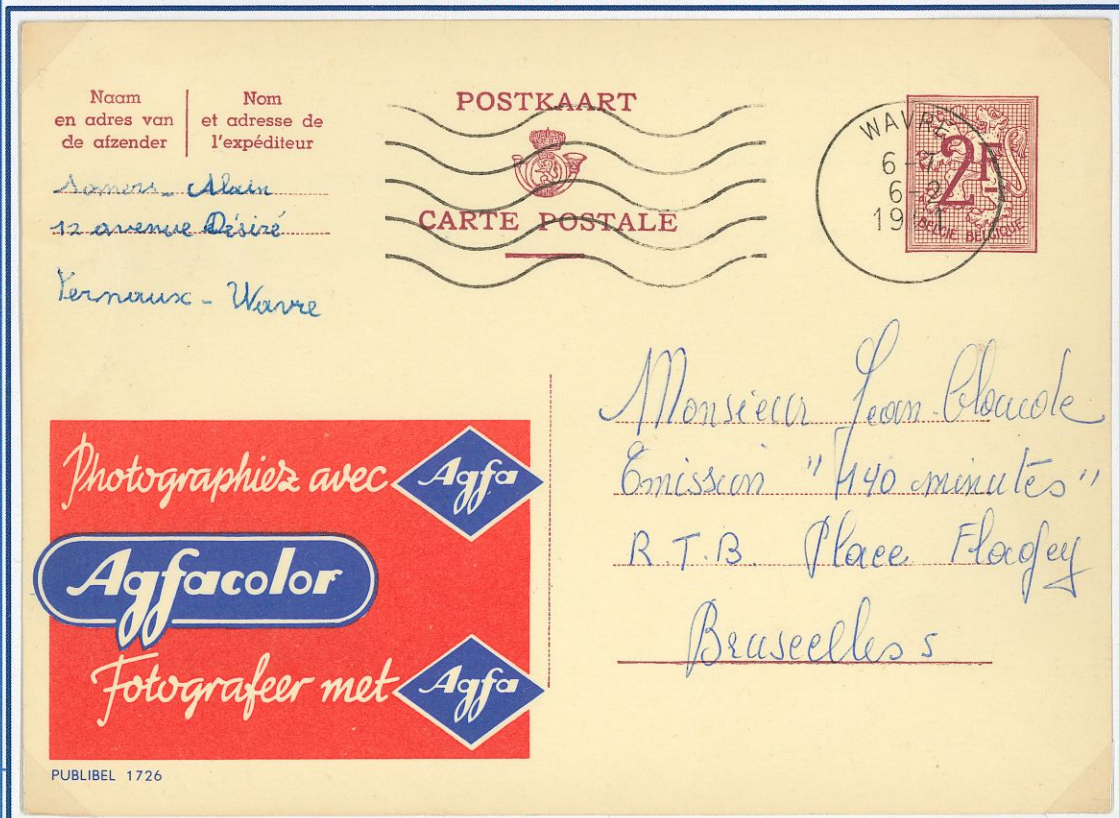 Naam
en adres van
de afzender
Nom
et adresse de
l'expéditeur
Somers - Alain
12 avenue Désiré
Yernaux - Wavre
POSTKAART
CARTE POSTALE
WAVRE
6 -
6-2
19 1
2F
BELGIE BELGIQUE
Monsieur Jean-Claude
Emission "140 minutes"
R.T.B. Place Flagey
Bruxelles 5
Photographiez avec Agfa
Agfacolor
Fotografeer met Agfa
PUBLIBEL 1726